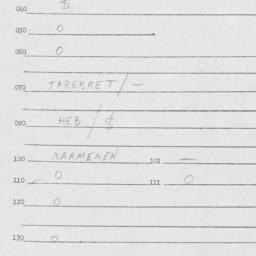 040 $
050 0
060 0
070 TAREBRET / -
090 HEB / $
100 BARMENEN 101 -
110 0 111 0
120 0
130 0